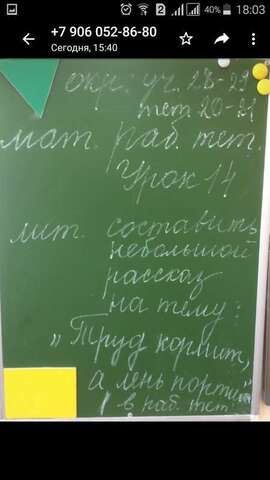 18:03
40%
+7 906 052-86-80
Сегодня, 15:40
окр. уч. 28-29
тет. 20-21
мат. раб. тет.
Урок 14
лит. составить
небольшой
рассказ
на тему:
„Труд кормит,
а лень портит"
в раб. тет.